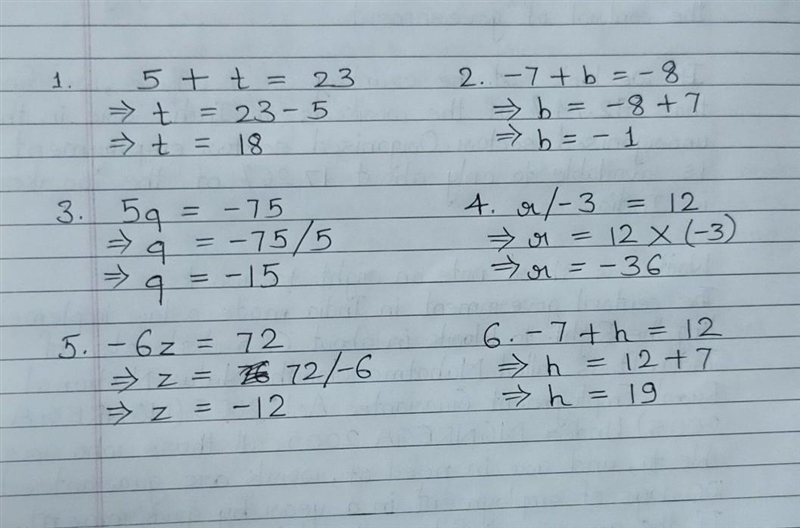 1. 5 + t = 23
⇒ t = 23 - 5
⇒ t = 18
2. -7 + b = -8
⇒ b = -8 + 7
⇒ b = -1
3. 5q = -75
⇒ q = -75/5
⇒ q = -15
4. r/-3 = 12
⇒ r = 12 × (-3)
⇒ r = -36
5. -6z = 72
⇒ z = 72/-6
⇒ z = -12
6. -7 + h = 12
⇒ h = 12 + 7
⇒ h = 19